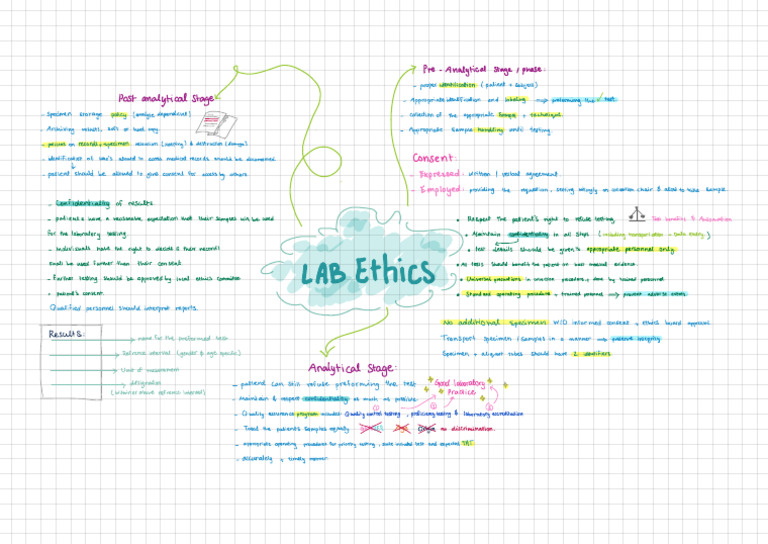 Pre - Analytical Stage / phase:
- proper identification (patient + subject)
- Appropriate identification and labeling → preforming the ✓ test
- collection of the appropriate sample + technique.
- Appropriate sample handling until testing
Consent:
- Expressed: written / verbal agreement
- Employed: providing the requisition, sitting willingly on donation chair &
to take sample
• Respect the patient's right to refuse testing.
• Maintain confidentiality in all steps (including transportation + Data Entry)
• test details should be given to appropriate personnel only
• As tests should benefit the patient on best medical evidence.
• Universal precautions in invasive procedures, done by trained personnel
• Standard operating procedure + trained personnel → prevent adverse events
No additional specimen W/O informed consent + ethics board approval
Transport specimen / samples in a manner → preserve integrity
Specimen + aliquot tubes should have 2 identifiers.
LAB Ethics
Analytical Stage:
- patient can still refuse preforming the test
- maintain & respect confidentiality as much as possible
- Quality assurance program includes Quality control testing, proficiency testing & laboratory accreditation
① ② ③
Good laboratory
Practice
- Treat the patients samples equally
no discrimination.
- appropriate operating procedures for primary testing, state included test and expected TAT
- accurately + timely manner
Post analytical Stage
- Specimen storage policy (analyte dependent)
- Archiving results, soft or hard copy
- policies on records + specimen retention (
) & destruction (
)
- identification of
allowed to access medical records should be documented
- patient should be allowed to give consent for access by others.
- Confidentiality of results
- patients have a reasonable expectation that their samples will be used
for the laboratory testing.
- Individuals have the right to decide if their records
shall be used further than their consent
- Further testing should be approved by local ethics committee
+ patient's consent.
Qualified personnel should interpret reports.
Results:
→ name for the preformed test
→ Reference interval (gender & age specific)
→ Unit of measurement
→
(
reference interval)